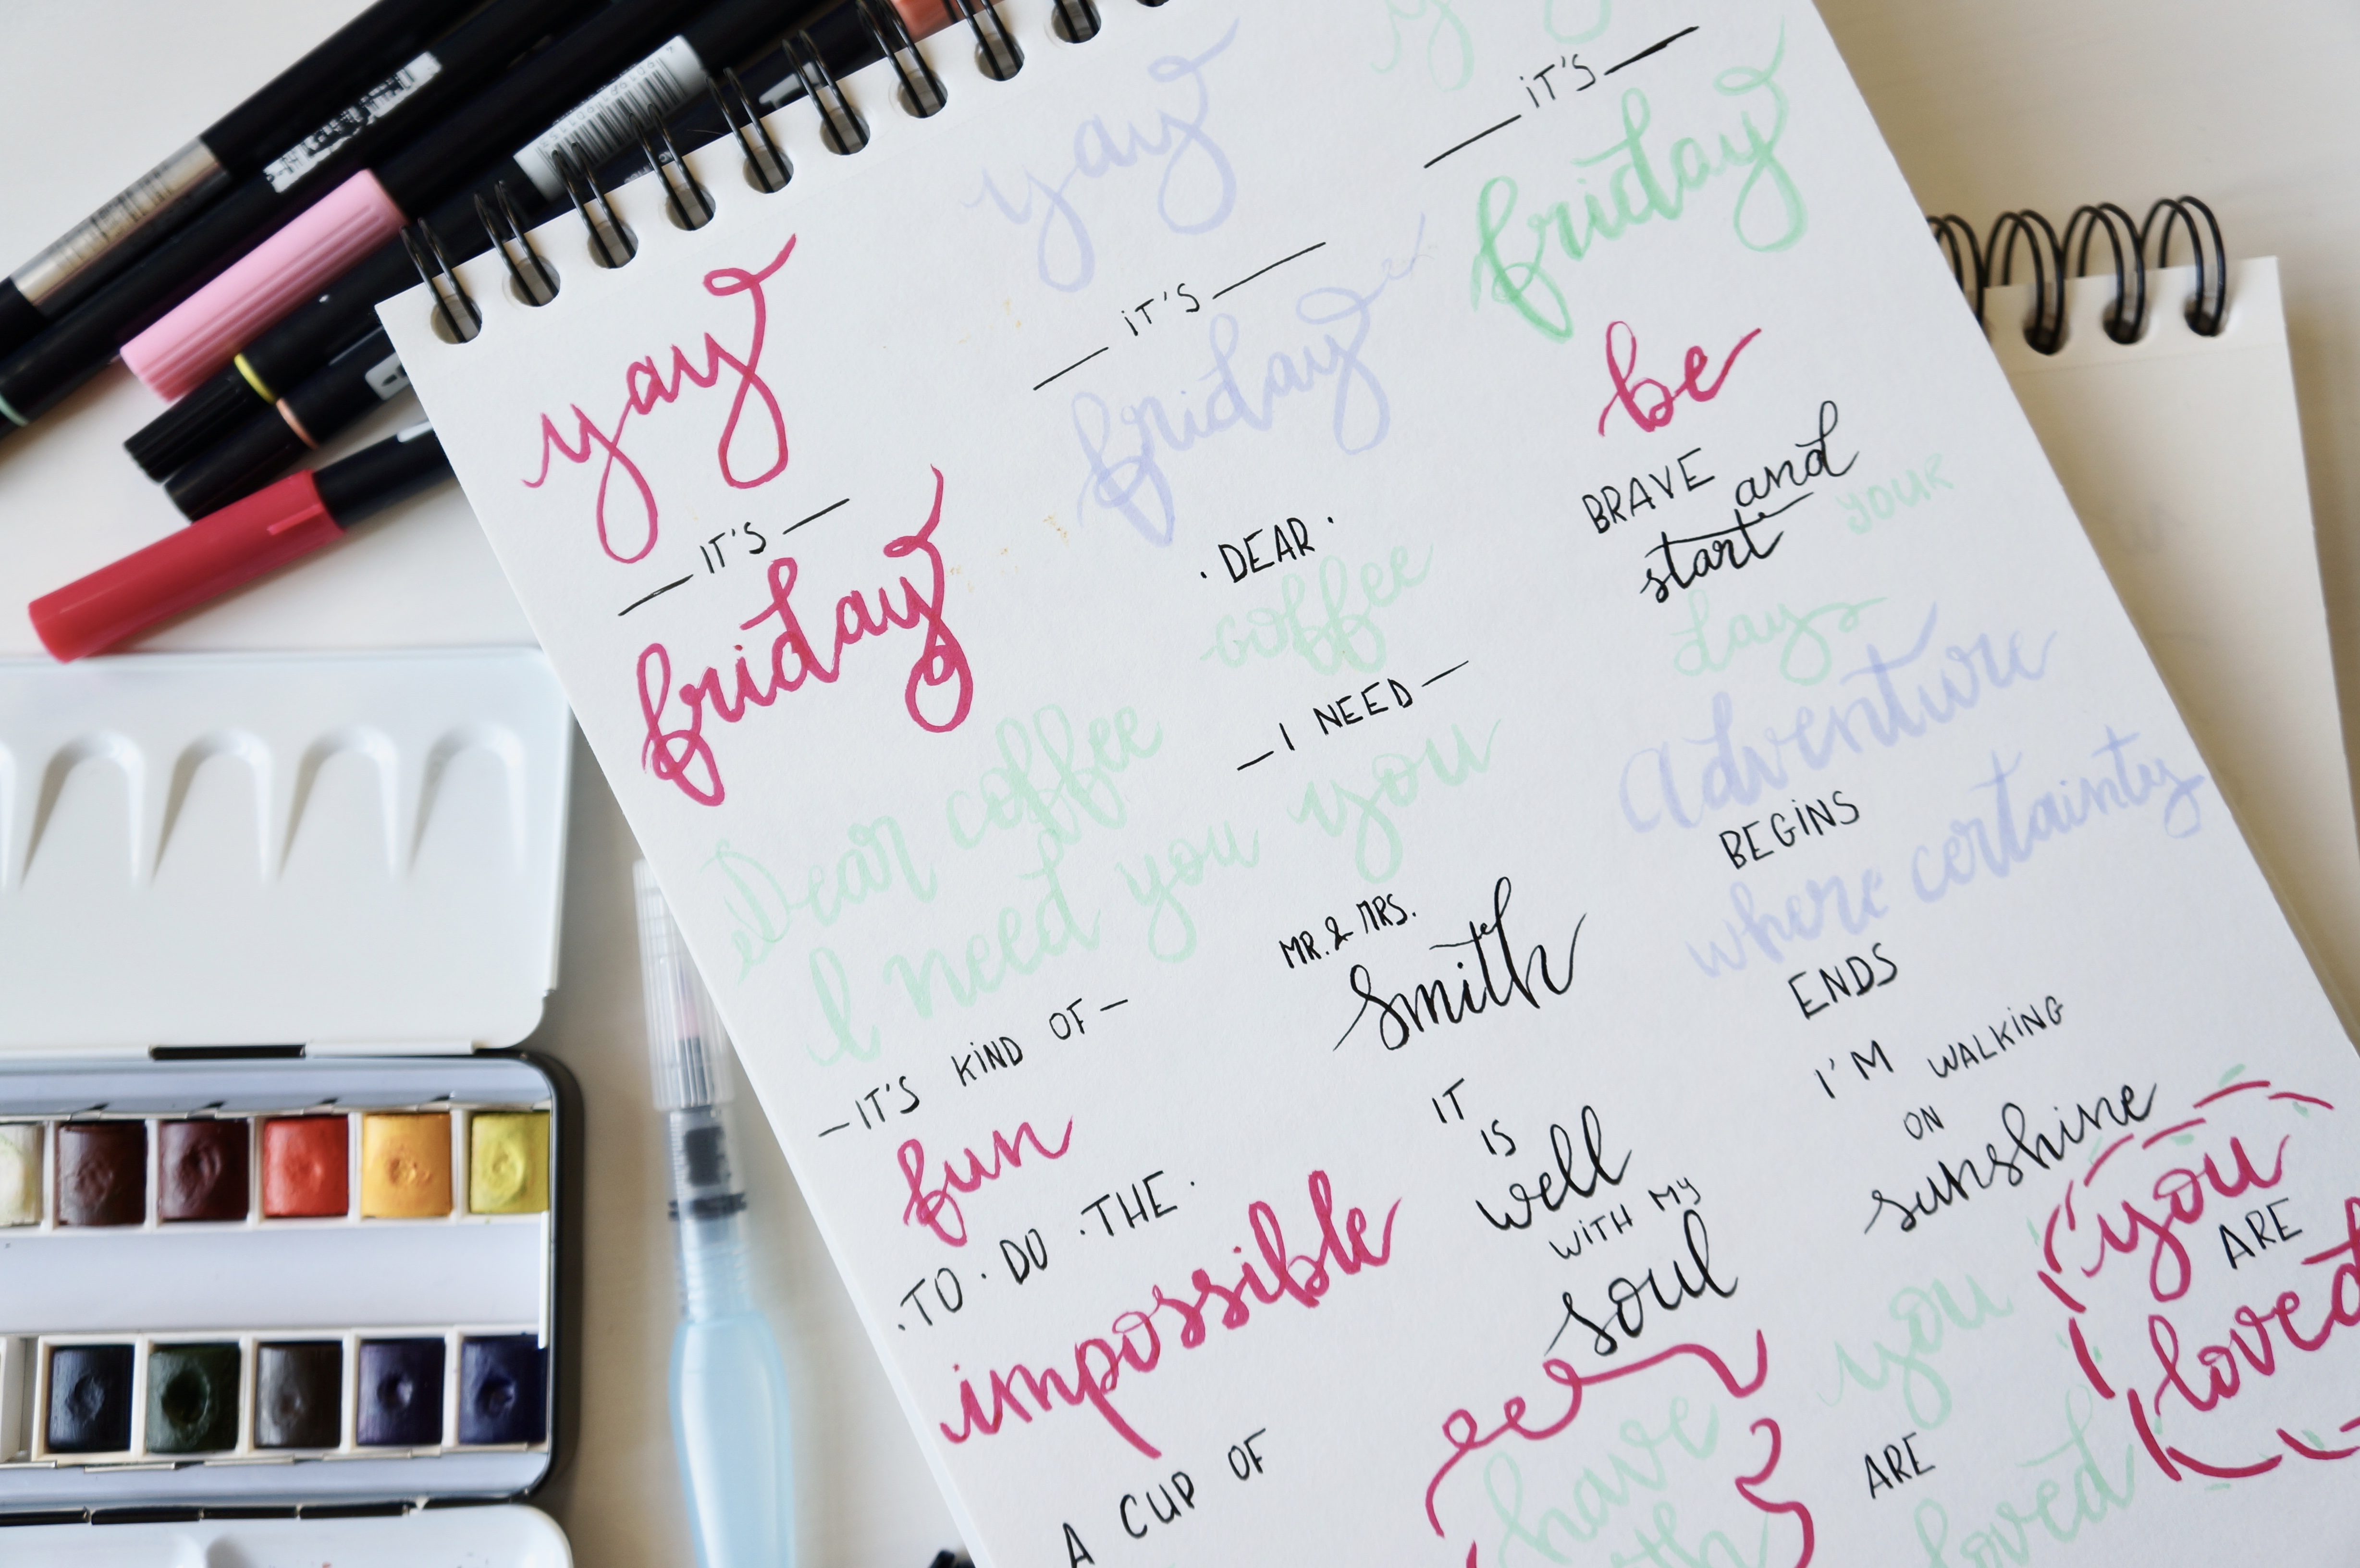 yay
— IT'S —
friday
Dear coffee
I need you
— IT'S KIND OF —
fun
. TO . DO . THE .
impossible
A CUP OF
yay
— IT'S —
friday
. DEAR .
coffee
— I NEED —
you
MR. & MRS.
Smith
IT
IS
well
WITH MY
soul
have
y
— IT'S —
friday
be
BRAVE and
start YOUR
days
Adventure
BEGINS
where certainty
ENDS
I'M WALKING
ON
sunshine
you
ARE
loved
you
ARE
loved